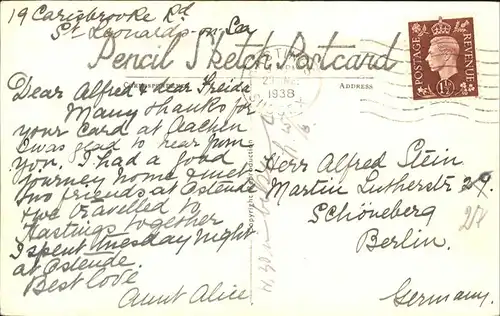 19 Carisbrooke Rd
St Leonards-on-Sea
Pencil Sketch Postcard
CORRESPONDENCE
ADDRESS
1938
POSTAGE
REVENUE
1½D
Dear Alfred & dear Freida
Many thanks for
your card at Aachen
I was glad to hear from
you. I had a good
journey home & met
two friends at Ostende
& we travelled to
Hastings together
I spent Tuesday night
at Ostende.
Best love
Aunt Alice.
Copyright
Herr Alfred Stein
Martin Lutherstr 29.
Schöneberg
Berlin.
Germany.